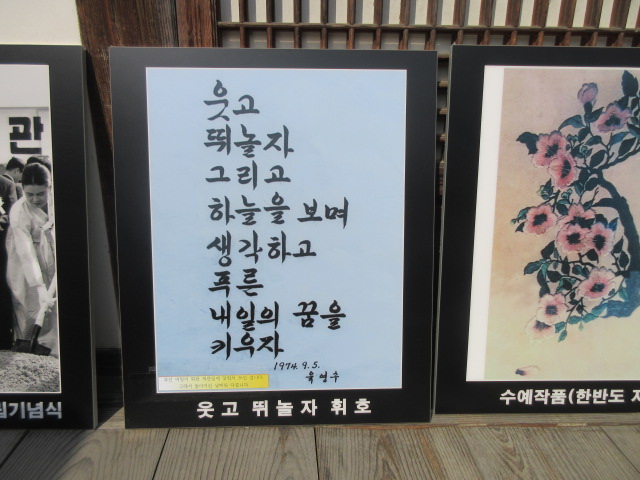 관
식기념식
웃고
뛰놀자
그리고
하늘을 보며
생각하고
푸른
내일의 꿈을
키우자
1974. 9. 5.
육영수
웃고 뛰놀자 휘호
수예작품(한반도 지